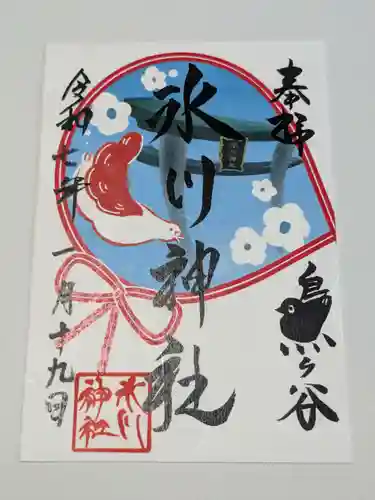 奉拝
鳥ヶ谷
氷川神社
令和七年一月十九日
氷川
神社